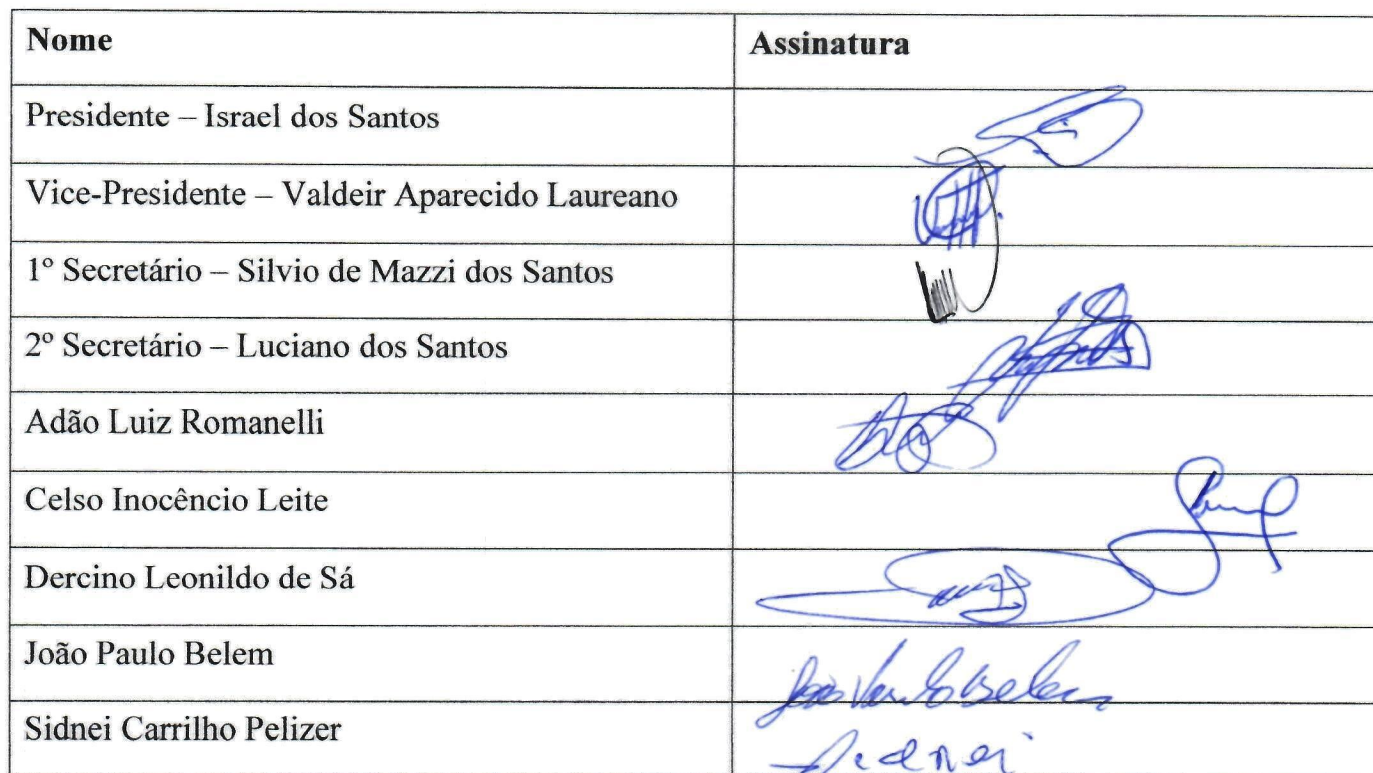 Nome Assinatura
Presidente – Israel dos Santos
Vice-Presidente – Valdeir Aparecido Laureano
1º Secretário – Silvio de Mazzi dos Santos
2º Secretário – Luciano dos Santos
Adão Luiz Romanelli
Celso Inocêncio Leite
Dercino Leonildo de Sá
João Paulo Belem
Sidnei Carrilho Pelizer Sidnei